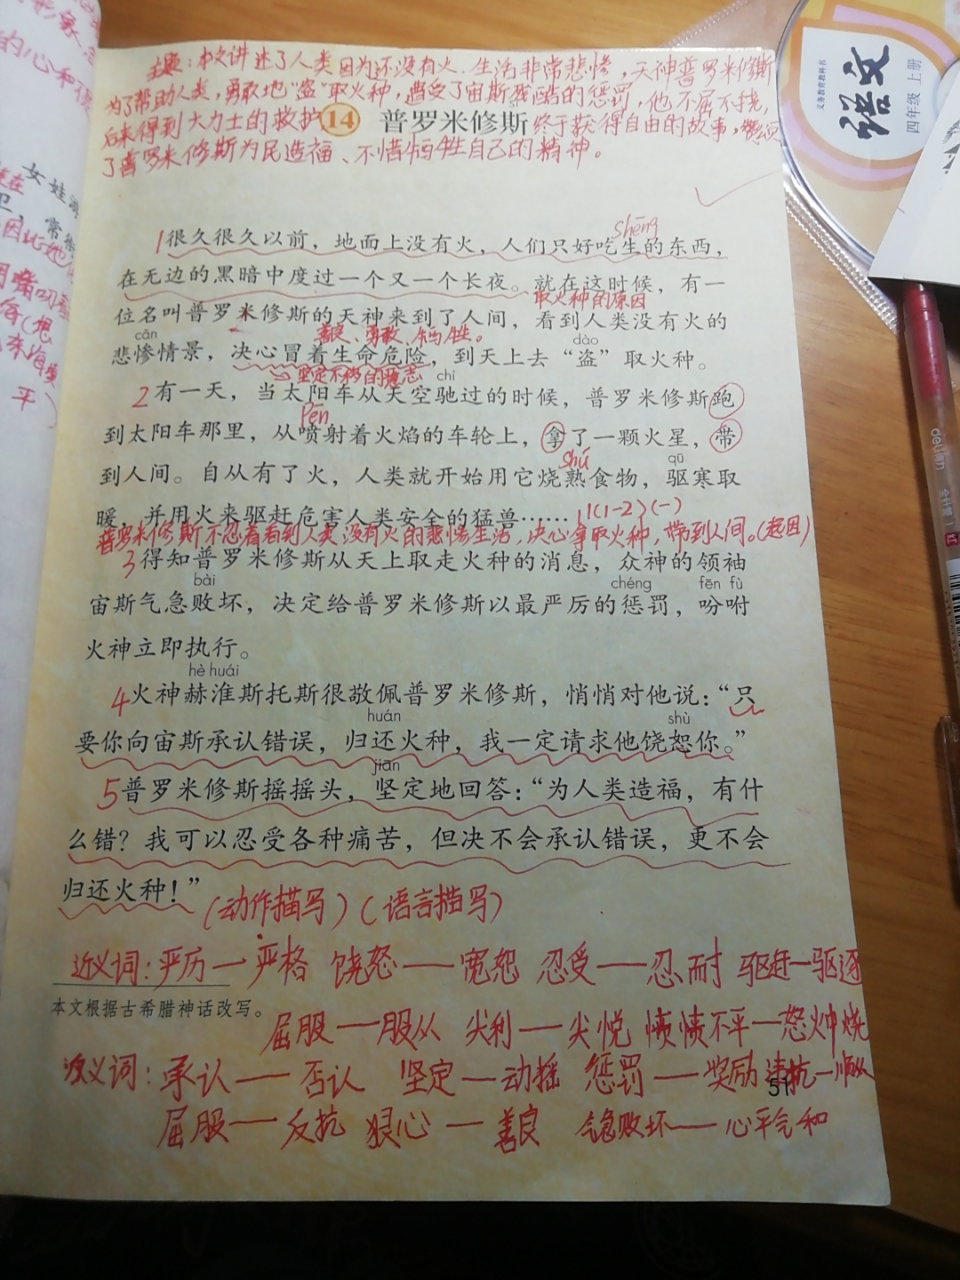 主题：本文讲述了人类因为还没有火，生活非常悲惨，天神普罗米修斯
为了帮助人类，勇敢地“盗”取火种，遭受了宙斯残酷的惩罚，他不屈不挠，
后来得到大力士的救护 终于获得自由的故事，赞颂
14 普罗米修斯
了普罗米修斯为民造福、不惜牺牲自己的精神。
shēng
1很久很久以前，地面上没有火，人们只好吃生的东西，
在无边的黑暗中度过一个又一个长夜。就在这时候，有一
取火种的原因
位名叫普罗米修斯的天神来到了人间，看到人类没有火的
善良、勇敢、牺牲。
cǎn dào
悲惨情景，决心冒着生命危险，到天上去“盗”取火种。
坚定不移的意志
chí
2有一天，当太阳车从天空驰过的时候，普罗米修斯跑
pēn
到太阳车那里，从喷射着火焰的车轮上，拿了一颗火星，带
shú qū
到人间。自从有了火，人类就开始用它烧熟食物，驱寒取
暖，并用火来驱赶危害人类安全的猛兽……
1(1-2)(一)
普罗米修斯不忍看到人类没有火的悲惨生活，决心拿取火种，带到人间。(起因)
3得知普罗米修斯从天上取走火种的消息，众神的领袖
bài chéng fēn fù
宙斯气急败坏，决定给普罗米修斯以最严厉的惩罚，吩咐
火神立即执行。
hè huái
4火神赫淮斯托斯很敬佩普罗米修斯，悄悄对他说：“只
huán shù
要你向宙斯承认错误，归还火种，我一定请求他饶恕你。”
jiān
5普罗米修斯摇摇头，坚定地回答：“为人类造福，有什
么错？我可以忍受各种痛苦，但决不会承认错误，更不会
归还火种！”
(动作描写)(语言描写)
近义词：严历一严格 饶恕——宽恕 忍受——忍耐 驱赶一驱逐
本文根据古希腊神话改写。
屈服——服从 尖利——尖悦 愤愤不平—怒火中烧
反义词：承认——否认 坚定—动摇 惩罚——奖励 违抗—顺从
51
屈服——反抗 狠心——善良 气急败坏——心平气和
语文
义务教育教科书
四年级 上册
deli